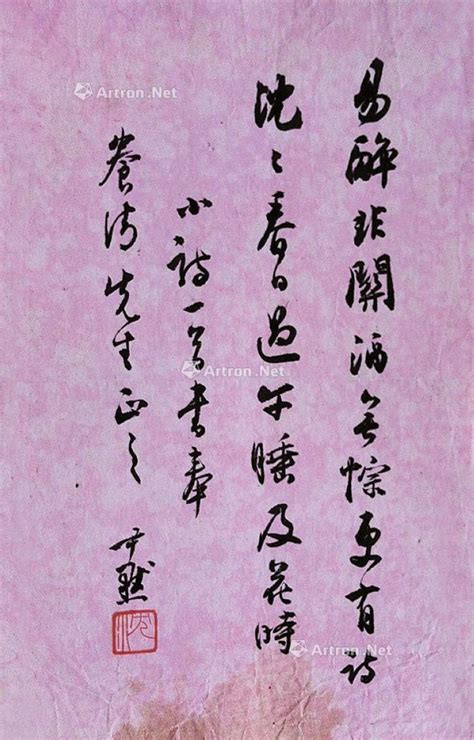 易醉非關酒無悰更有詩
沈〻春日過午睡及花時
小詩一首書奉
養清先生正之
尹默
沈
Artron.Net
Artron.Net
Artron.Net